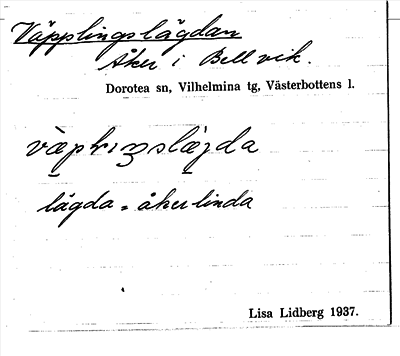 Väpplingslägdan
Åker i Bellvik.
Dorotea sn, Vilhelmina tg, Västerbottens l.
lägda = åkerlinda
Lisa Lidberg 1937.